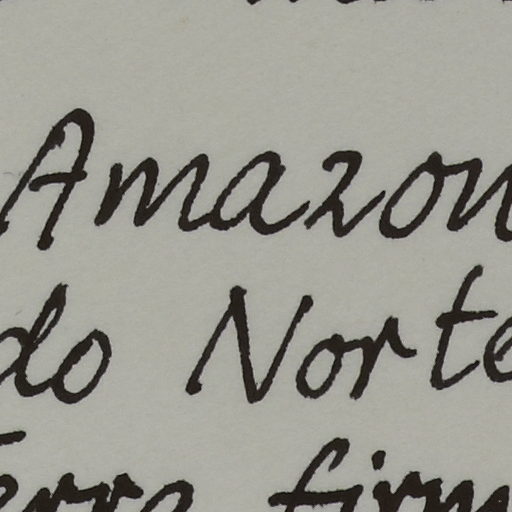 Amazon
do Norte
erra firm